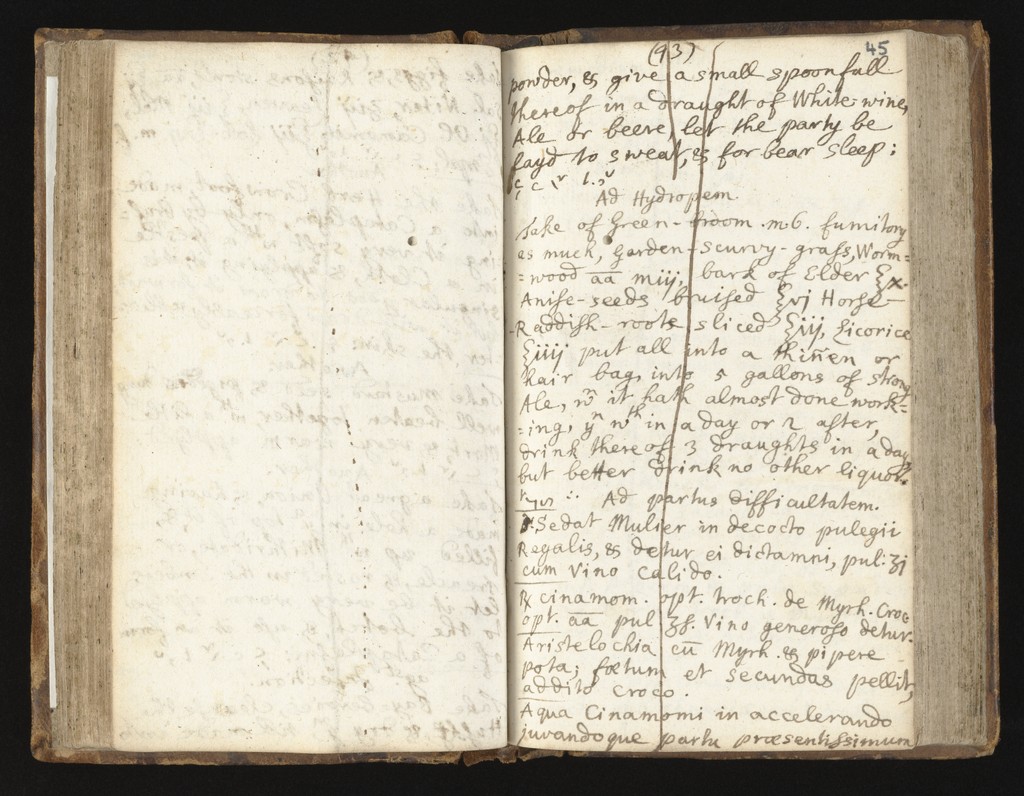 (93)
45
powder, & give a small spoonfull
thereof in a draught of White-wine,
Ale or beere, let the party be
layd to sweat, & forbear sleep:
Ad Hydropem.
Take of Green-broom. m. 6. fumitory
as much, Garden-scurvy-grass, Worm=
=wood āā miij, bark of Elder ℥x.
Anise-seeds bruised ℥vj Horse
-Raddish-roots, sliced ℥iij, Licorice
℥iiij put all into a thiñen or
hair bag, into 5 gallons of strong
Ale, wn it hath almost done work=
=ing, yn wth in a day or 2 after,
drink thereof 3 draughts in a day
but better drink no other liquor.
Ad partus difficultatem.
Sedat Mulier in decocto pulegii
Regalis, & detur ei dictamni, pul. ʒj
cum Vino calido.
℞ cinamom. opt. troch. de Myrh. Croc
opt. āā pul ʒß. Vino generoso detur.
Aristelochia cū Myrh. & pipere
pota; fœtum et secundas pellit,
addito croco.
Aqua Cinamomi in accelerando
juvandoque partu præsentissimum